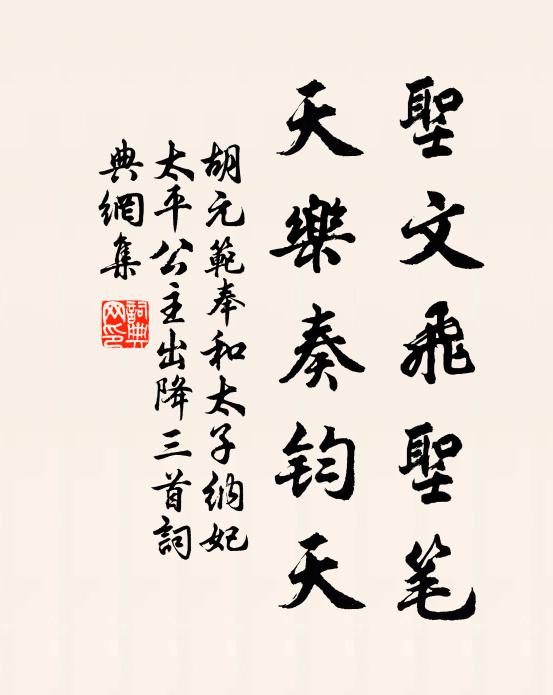 聖文飛聖笔
天樂奏钧天
胡元範奉和太子納妃
太平公主出降三首詞
典網集
詞典
网印